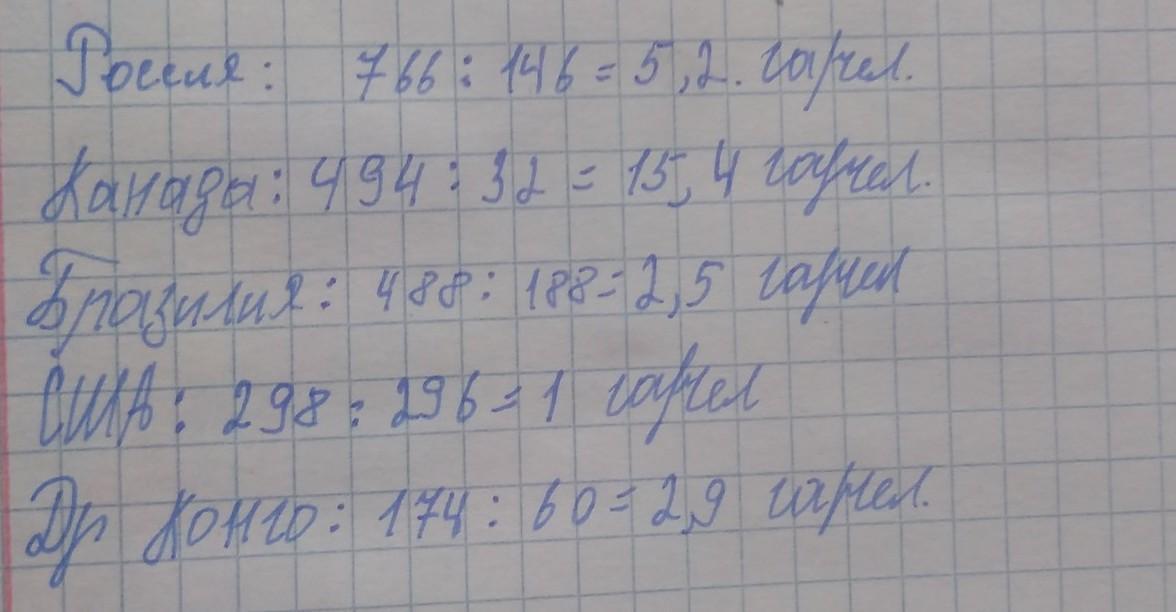 Россия: 766 : 146 = 5,2. га/чел.
Канада: 494 : 32 = 15,4 га/чел.
Бразилия: 488 : 188 = 2,5 га/чел
США: 298 : 296 = 1 га/чел
Др Конго: 174 : 60 = 2,9 га/чел.